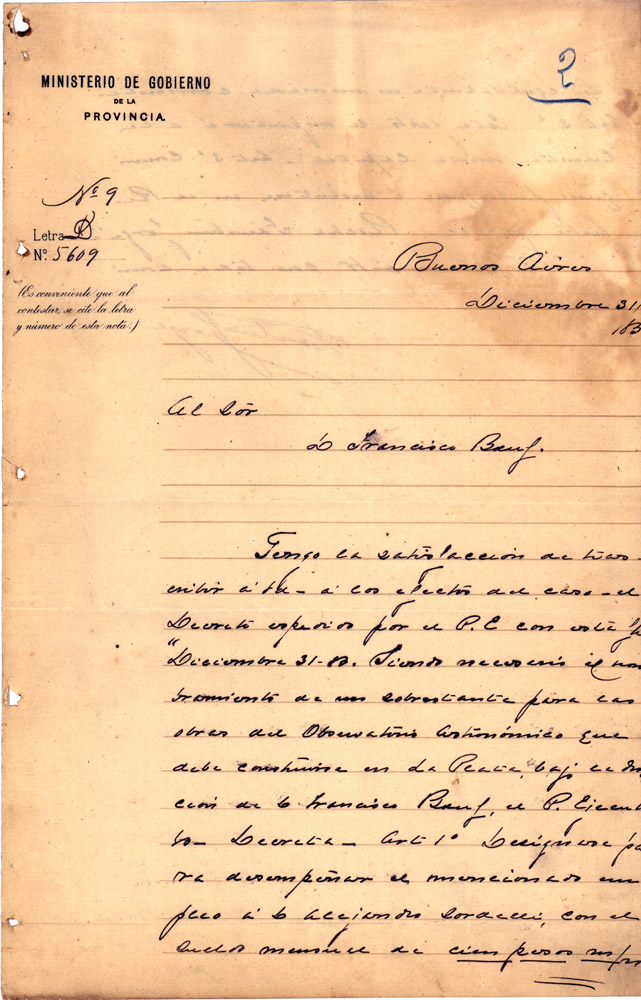 2
MINISTERIO DE GOBIERNO
DE LA
PROVINCIA.
Nº 9
Letra D
Nº. 5609
(Es conveniente que al
contestar, se cite la letra
y número de esta nota.)
Buenos Aires
Diciembre 31/
183
Al Sór
D Francisco Beuf.
Tengo la satisfaccion de tras-
cribir á Ud - á los efectos del caso - el
Decreto espedido por el P. E con esta
"Diciembre 31-83. Siendo necesario el nom
bramiento de un sobrestante para las
obras del Observatorio Astronómico que
debe construirse en La Plata, bajo la
ccion de D Francisco Beuf, el P. Ejecuti
vo - Decreta - Art 1º Desígnase pa
ra desempeñar el mencionado em
pleo á D Alejandro Sordelli, con el
sueldo mensual de cien pesos m/n